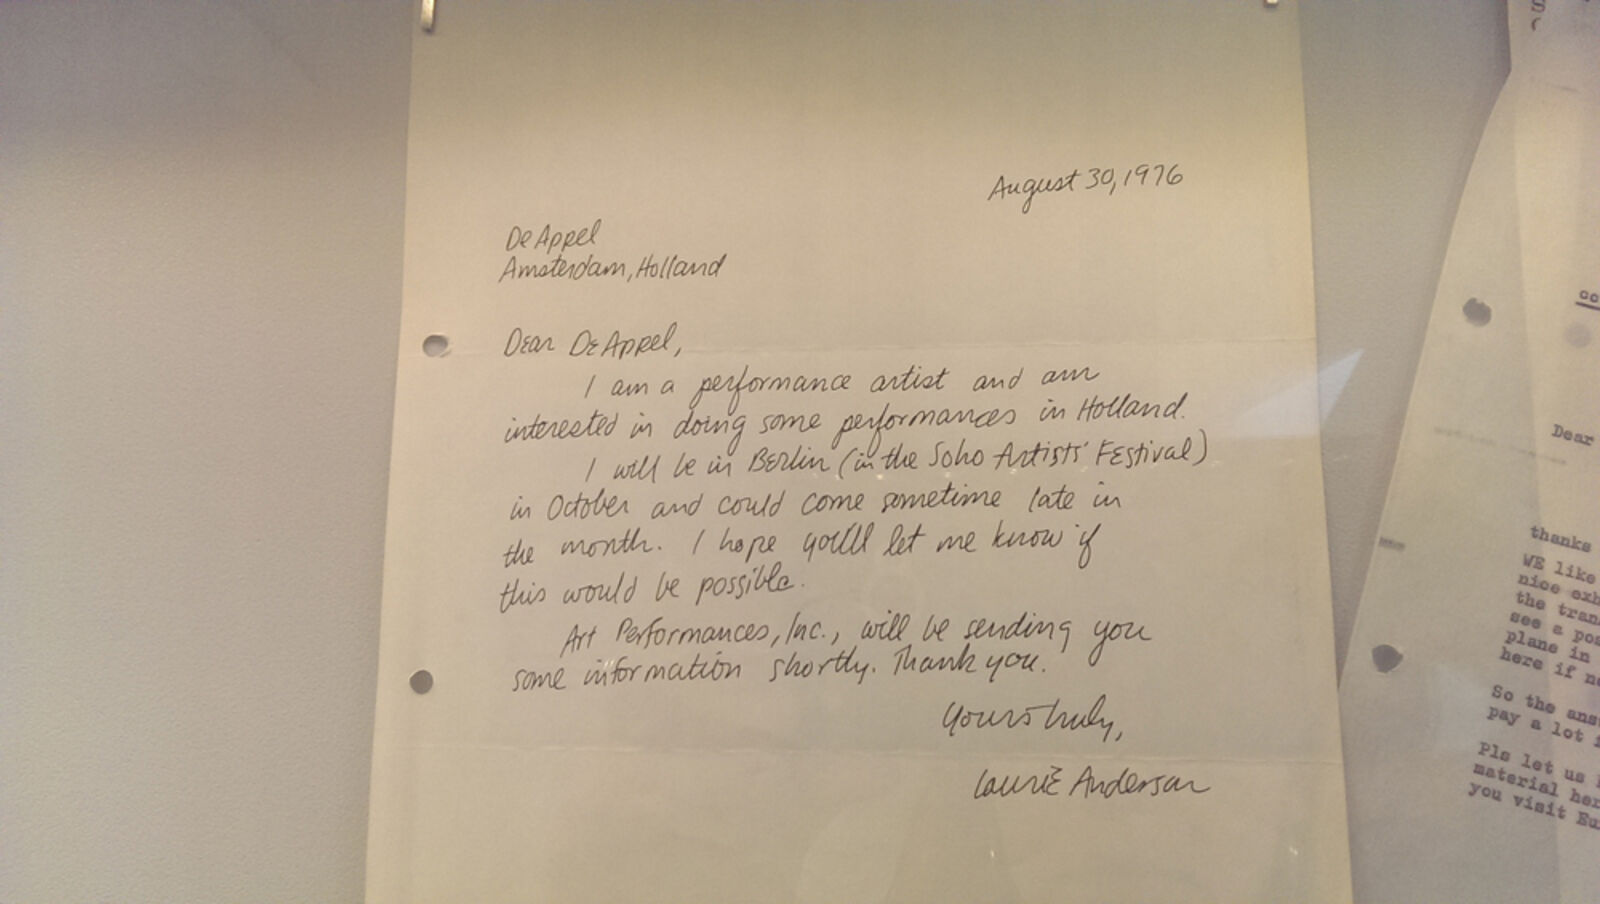 August 30, 1976
De Appel
Amsterdam, Holland
Dear De Appel,
I am a performance artist and am
interested in doing some performances in Holland.
I will be in Berlin (in the Soho Artists' Festival)
in October and could come sometime late in
the month. I hope you'll let me know if
this would be possible.
Art Performances, Inc., will be sending you
some information shortly. Thank you.
Yours truly,
Laurie Anderson
Dear
thanks
WE like
nice exh
the tran
see a pos
plane in
here if ne
So the answ
pay a lot
Pls let us
material her
you visit Eu